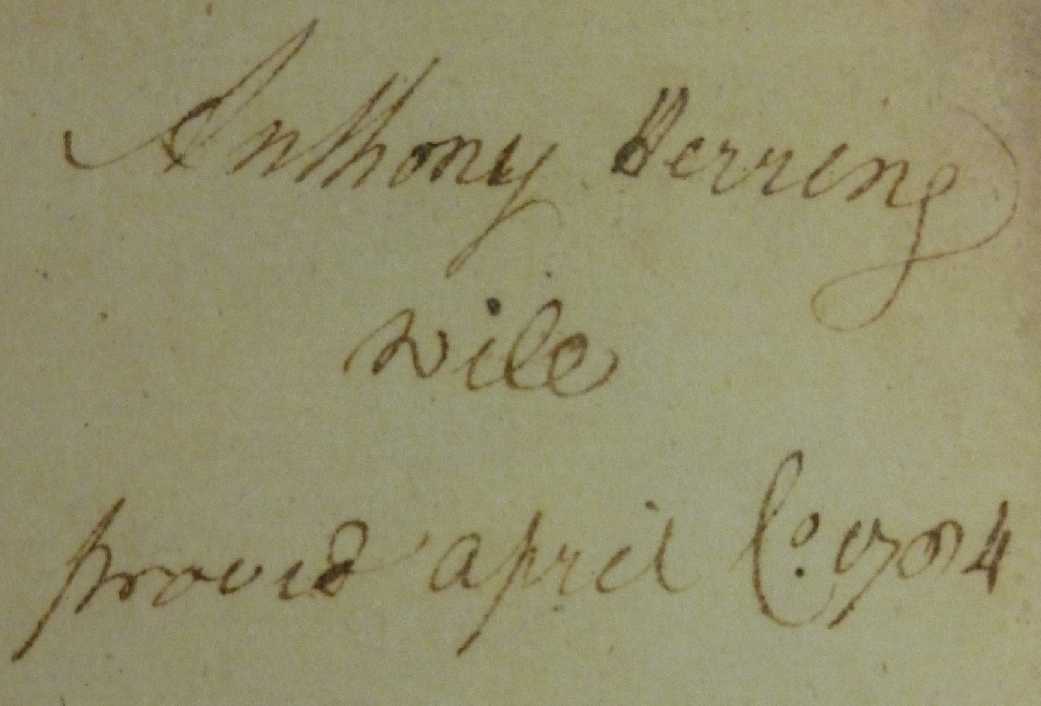 Anthony Herring
Will
provid april Co. 1784